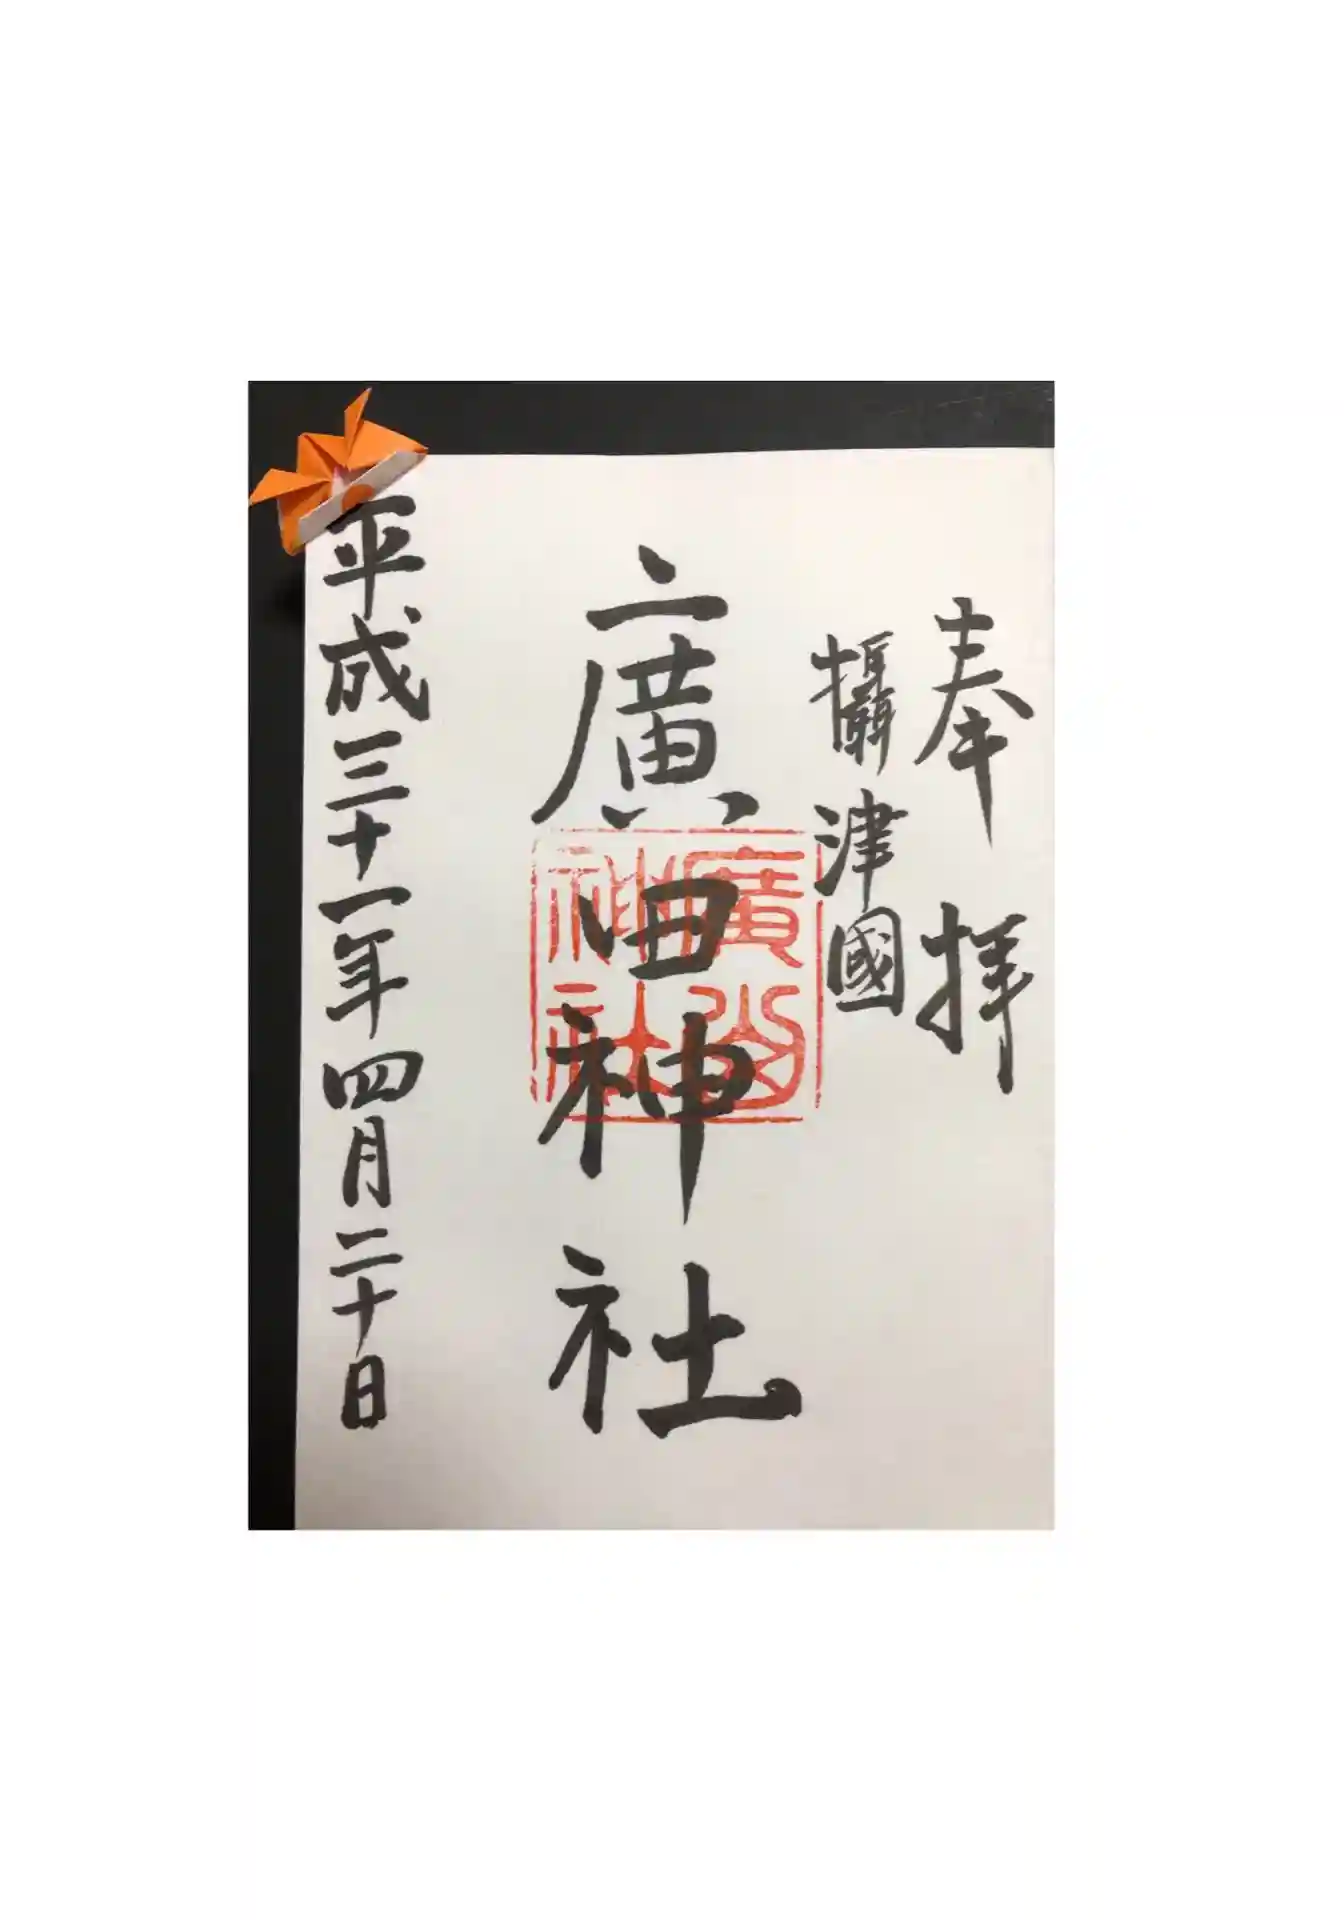 奉拝
攝津國
廣田神社
廣田神社
平成三十一年四月二十日